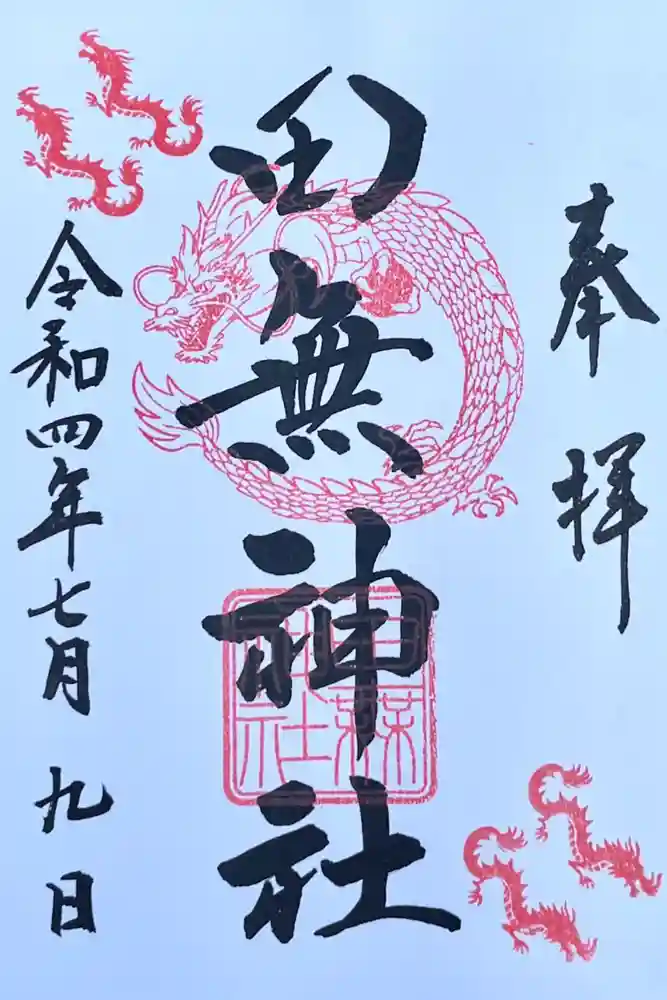 奉拝
田無神社
令和四年七月九日
田無神社